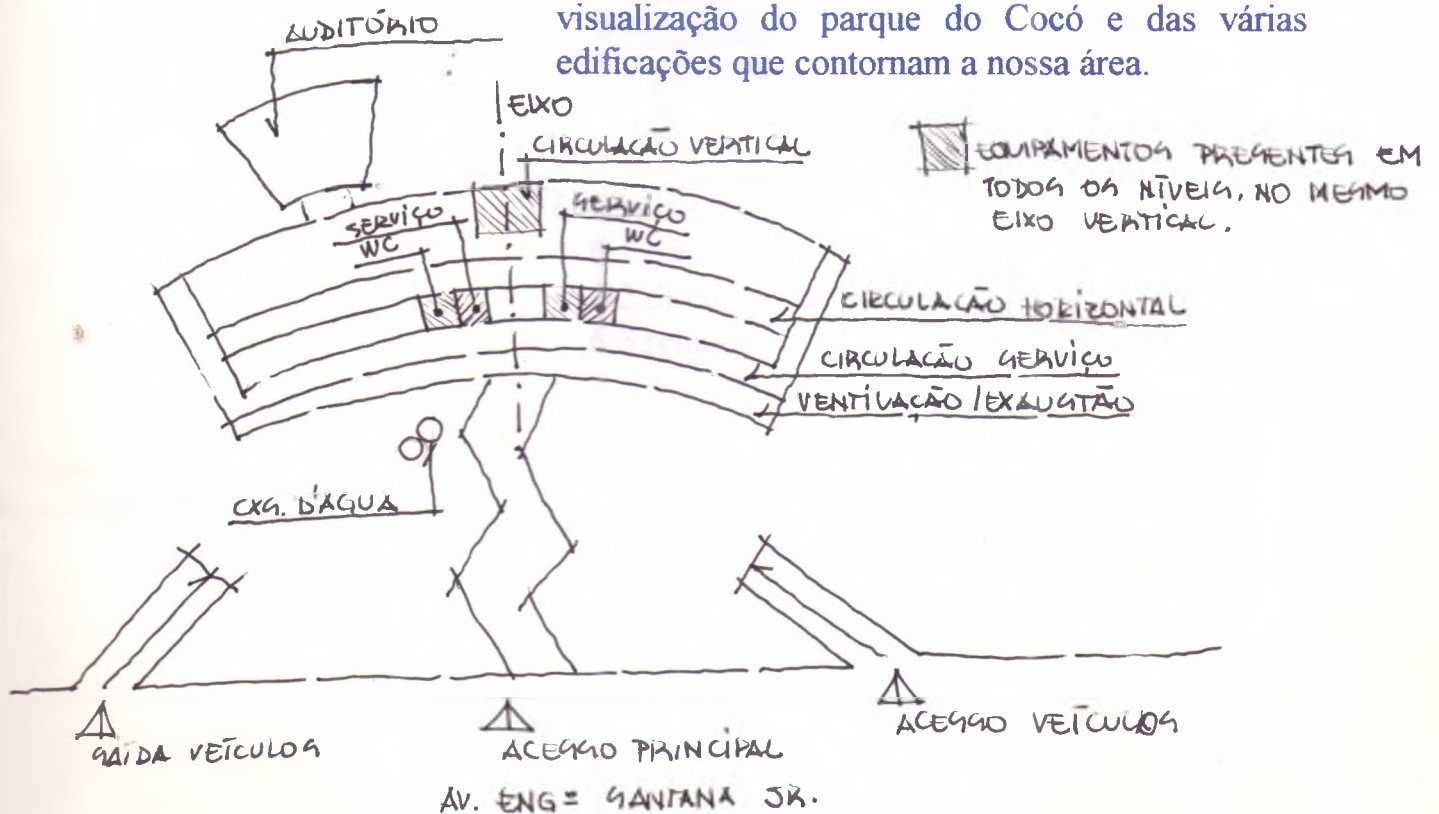 visualização do parque do Cocó e das várias
edificações que contornam a nossa área.
AUDITÓRIO
EIXO
CIRCULAÇÃO VERTICAL
EQUIPAMENTOS PRESENTES EM
TODOS OS NÍVEIS, NO MESMO
EIXO VERTICAL.
SERVIÇO
WC
SERVIÇO
WC
CIRCULAÇÃO HORIZONTAL
CIRCULAÇÃO SERVIÇO
VENTILAÇÃO / EXAUSTÃO
CXS. D'AGUA
SAÍDA VEÍCULOS
ACESSO PRINCIPAL
ACESSO VEÍCULOS
AV. ENGº SANTANA JR.